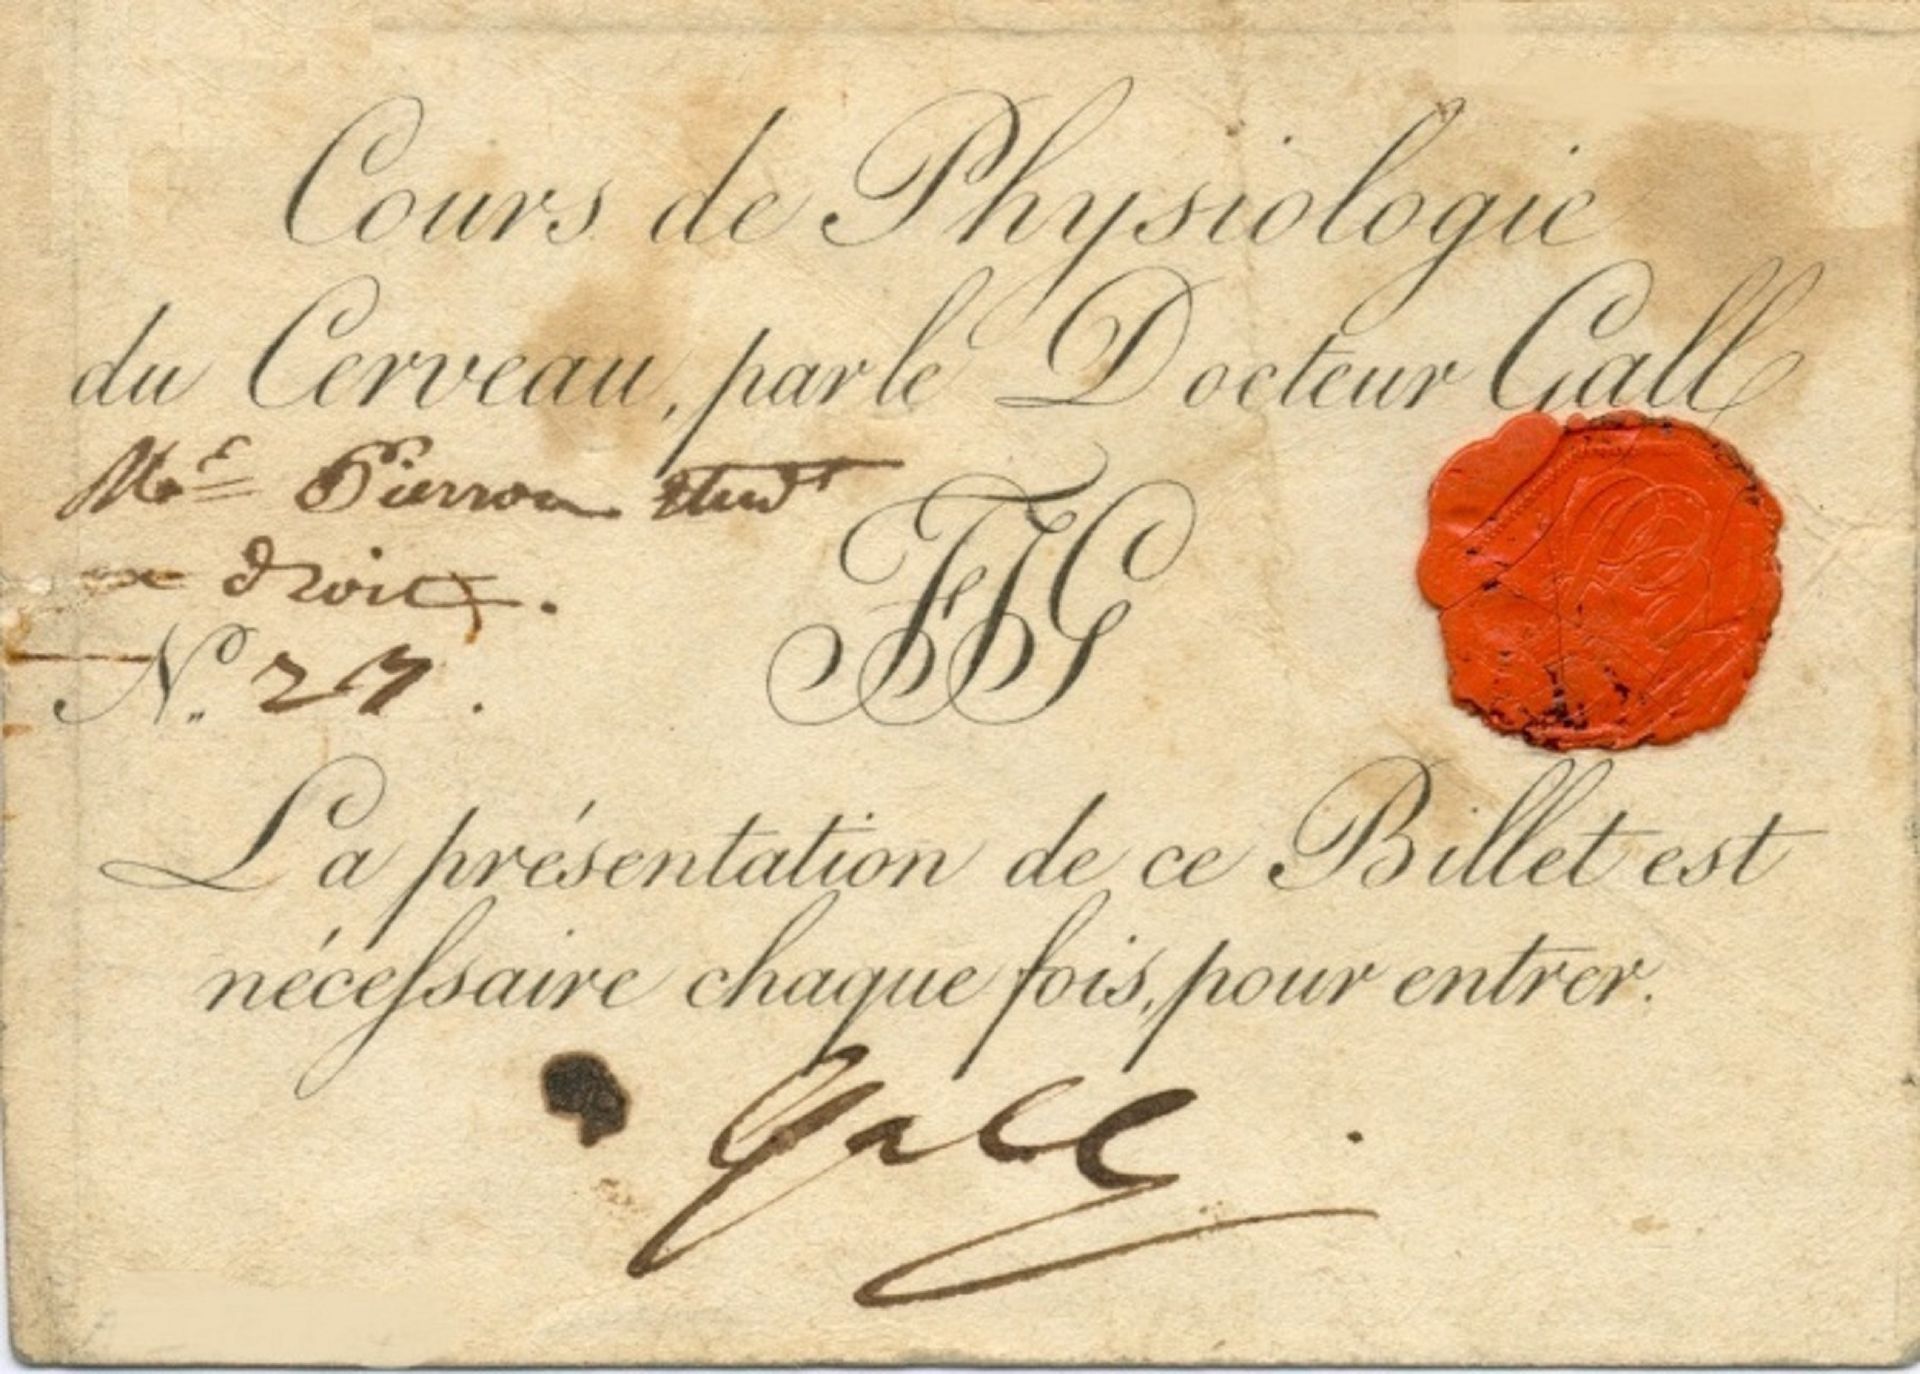 Cours de Physiologie
du Cerveau, par le Docteur Gall
Mr Pierron Etudt
en droit.
No. 27.
FJG
La présentation de ce Billet est
néceſsaire chaque fois, pour entrer.
Gall